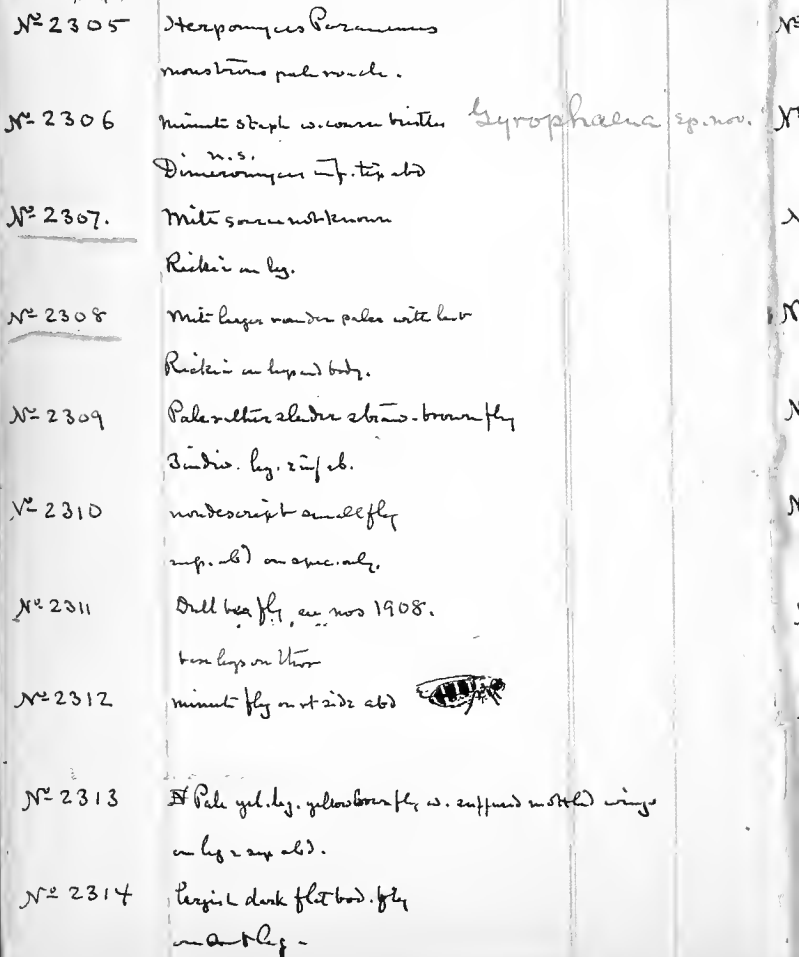 No 2305 Herpomyces Paranensis
monstrous pale roach.
No 2306 minute staph w. coarse bristles Gyrophaena sp. nov.
n.s.
Dimeromyces inf. tip abd
No 2307. Mite source not known
Rickia on leg.
No 2308 Mite larger rounder paler with last
Rickia on legs and body.
No 2309 Pale rather slender straw-brown fly
3 indiv. leg. inf ab.
No 2310 nondescript small fly
sup. abd on spec. only.
No 2311 Dull fly, see nos 1908.
base legs on thor
No 2312 minute fly on rt side abd
No 2313 Pale yel. leg. yellow brown fly w. mottled wings
on leg & sup abd.
No 2314 largish dark flat bod. fly
on ant leg -